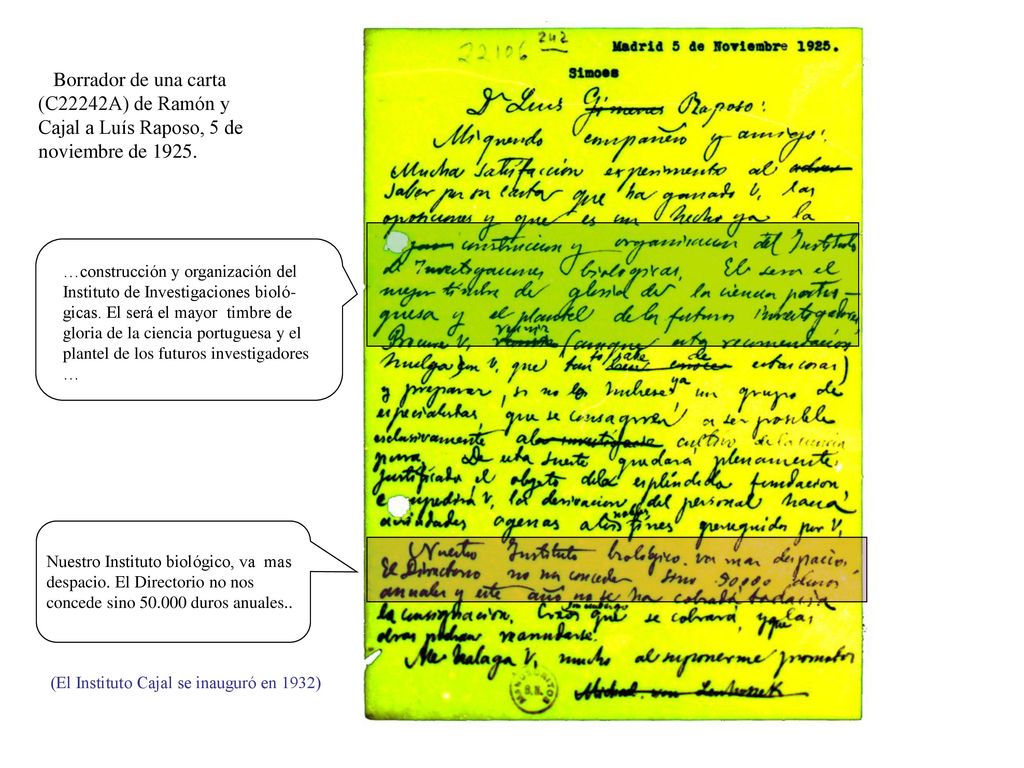 Borrador de una carta
(C22242A) de Ramón y
Cajal a Luís Raposo, 5 de
noviembre de 1925.
…construcción y organización del
Instituto de Investigaciones bioló-
gicas. El será el mayor timbre de
gloria de la ciencia portuguesa y el
plantel de los futuros investigadores
…
Nuestro Instituto biológico, va mas
despacio. El Directorio no nos
concede sino 50.000 duros anuales..
(El Instituto Cajal se inauguró en 1932)
22106 242
Madrid 5 de Noviembre 1925.
Simoes
Dr Luis Gimenes Raposo:
Mi querido compañero y amigo:
Mucha satisfacción experimento al
saber por su carta que ha ganado V. las
oposiciones y que es un hecho ya la
construccion y organizacion del Instituto
de Investigaciones biologicas. El sera el
mejor timbre de gloria de la ciencia portu-
guesa y el plantel de los futuros investigadores
Procure V. reunir (aunque esta recomendación
huelga con V. que tan de estas cosas)
y preparar, si no los hubiese ya un grupo de
especialistas que se consagren a ser posible
esclusivamente al cultivo de la ciencia
pura. De esta suerte quedará plenamente
justificado el objeto de la espléndida fundación
e impedirá V. la derivacion del personal hacia
actividades agenas a los nobles fines perseguidos por V.
Nuestro Instituto biológico va mas despacio.
El Directorio no nos concede sino 50000 duros
anuales y este año no se ha cobrado todavia
la consignacion. Creo sin embargo que se cobrará, y que las
obras podran reanudarse.
Me halaga V. mucho al suponerme promotor
MANUSCRITOS
B.N.